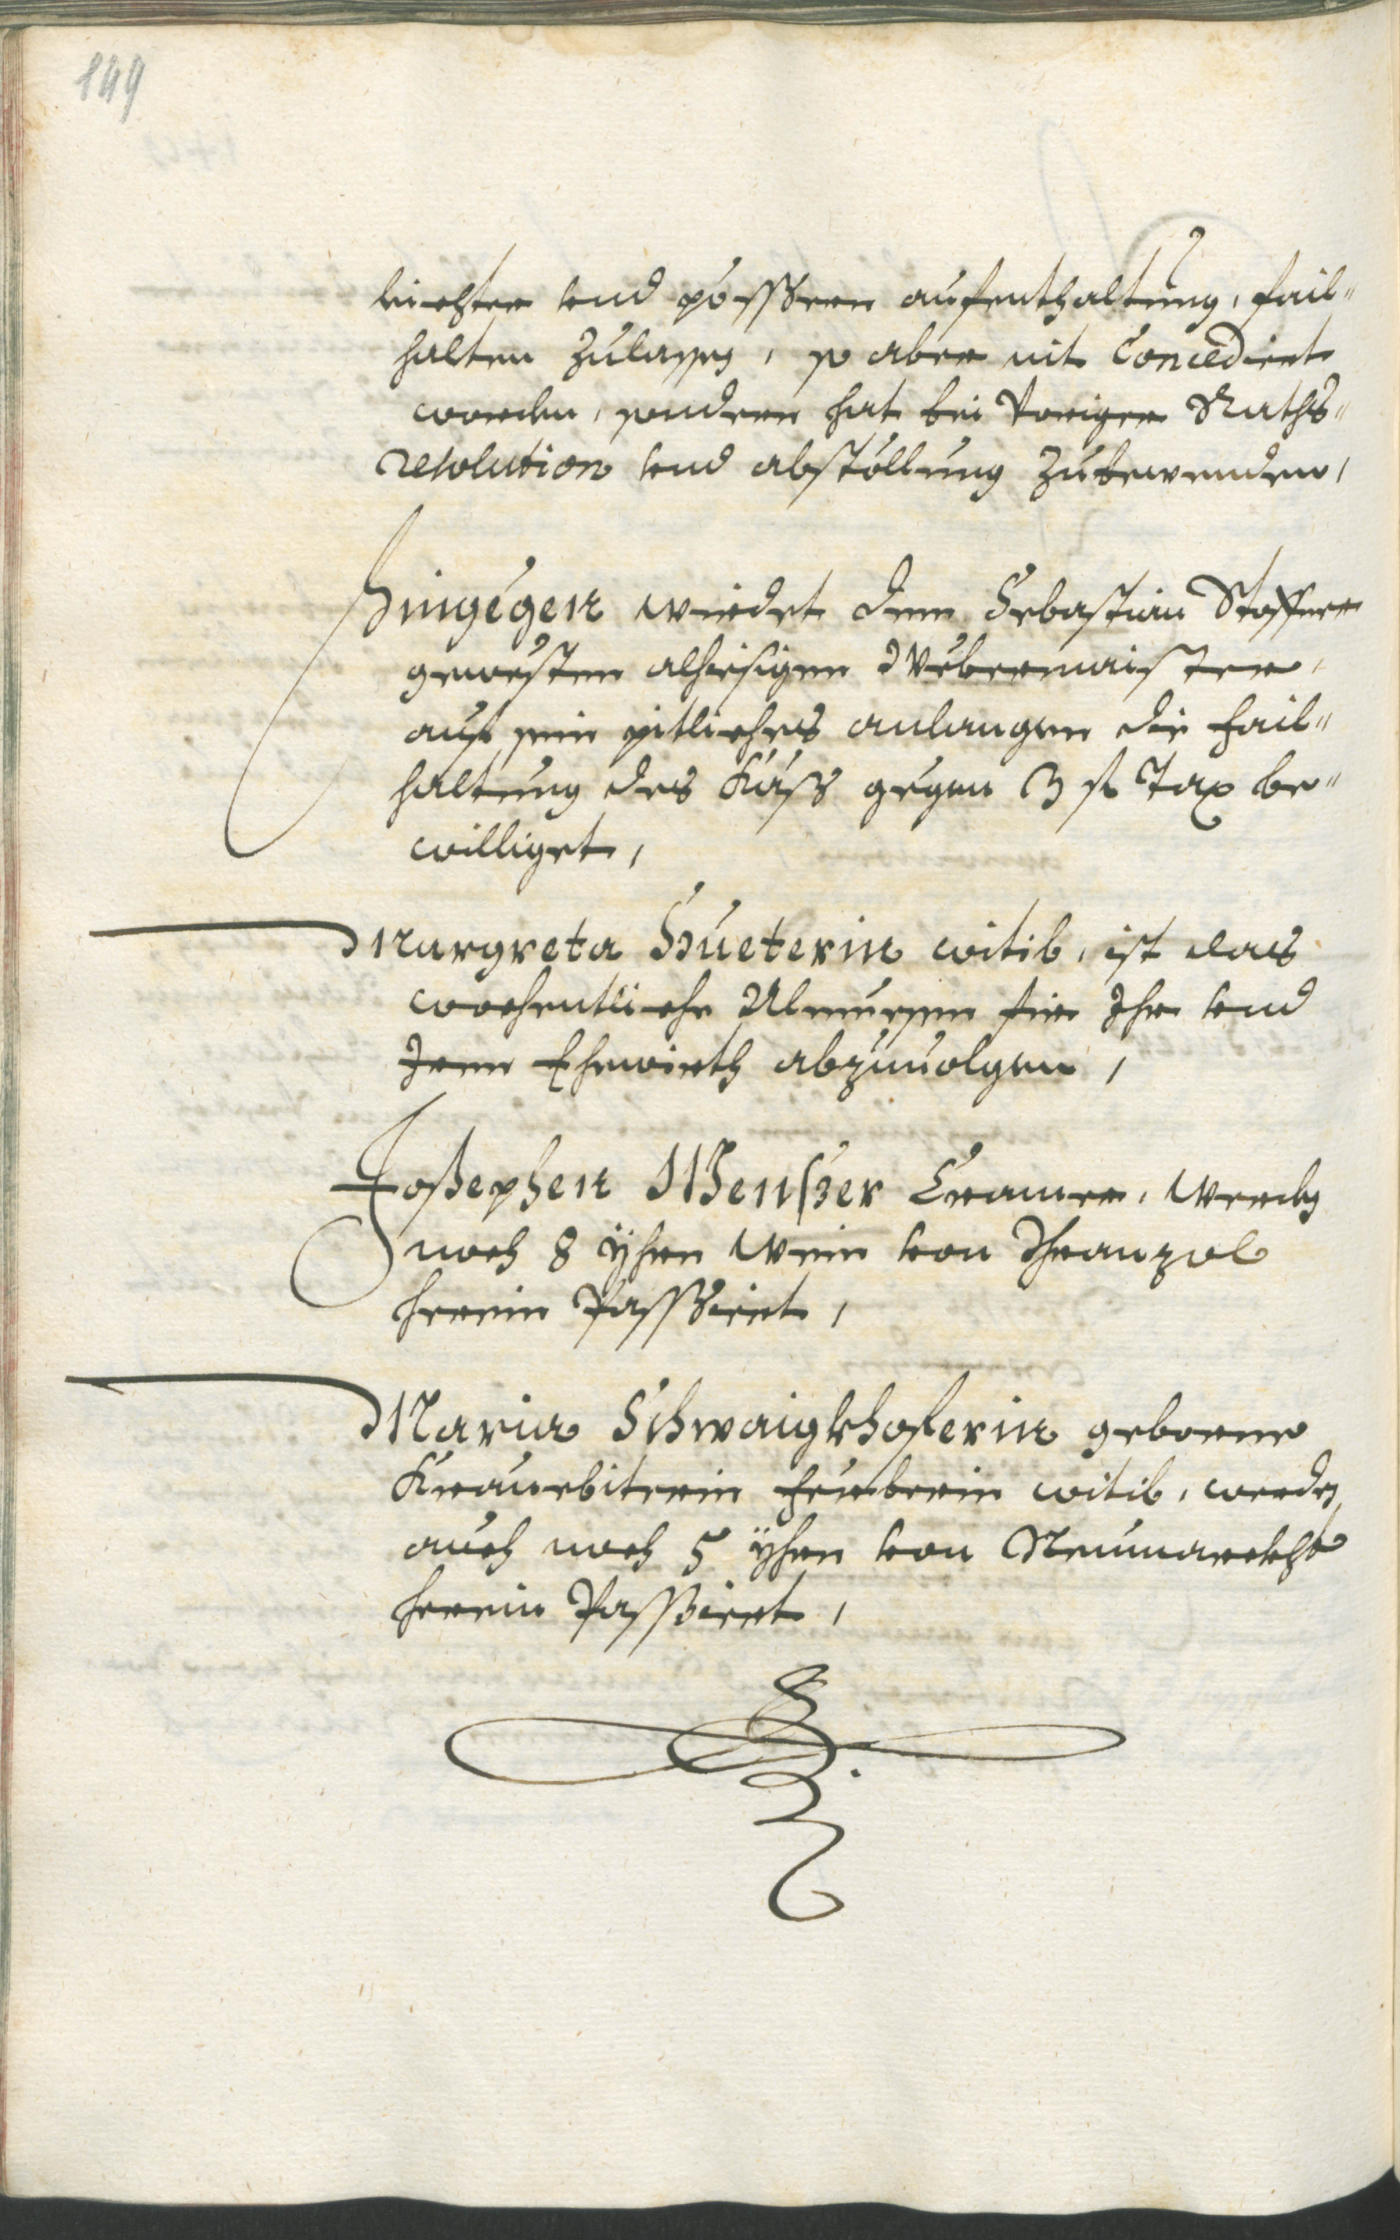 149
leichter vnd pösseren aufenthaltung, fail-
halten zulassen, so aber nit Concediert
worden, sondern hat bei voriger Raths-
resolution vnd abstöllung zubewenden,
Hingégen wierdet dem Sebastian Stoffner
gewesten alhiesigen Webermaister,
auf sein pitliches anlangen die fail-
haltung des Käss gegen 3 fl Tax be-
williget,
Margreta Hueterin witib, ist das
wochentliche Almuesen für Ihr vnd
Iren Ehewirth abzuuolgen,
Josephen Menszer Cramer, werden
noch 8 ÿhrn Wein von Thranzol
herein Passiert,
Maria Schwaigkhoferin geborne
Krauebiterin witib, werden
auch noch 5 ÿhrn von Neumarckht
herein Passiert,